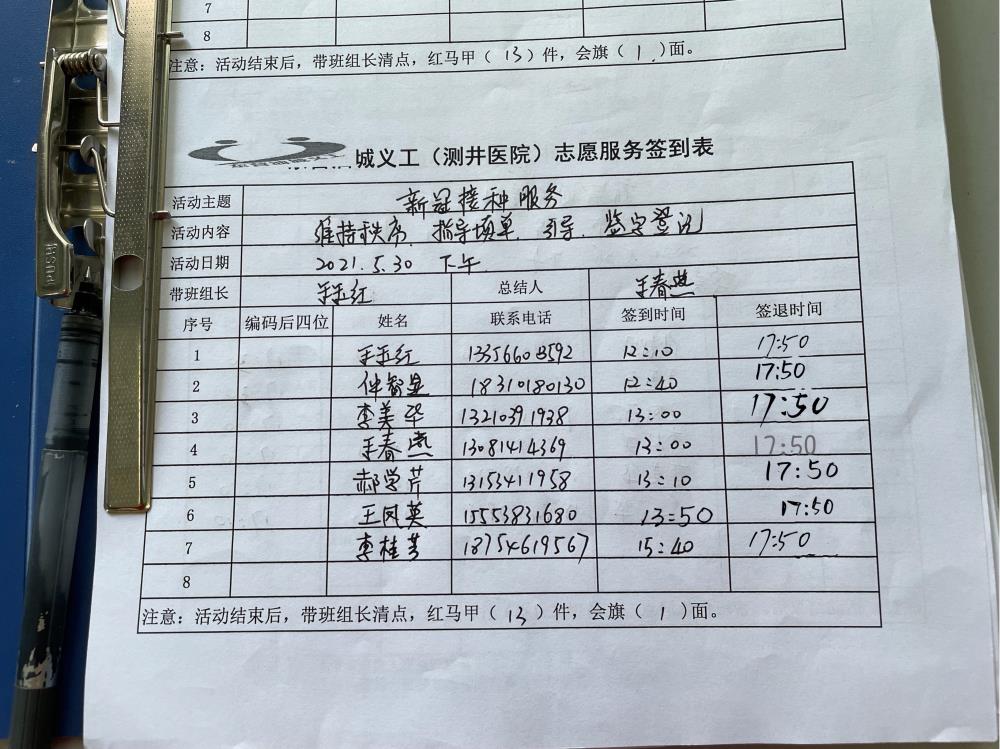 7
8
注意：活动结束后，带班组长清点，红马甲（13）件，会旗（1）面。
城义工（测井医院）志愿服务签到表
活动主题 新冠接种服务
活动内容 维持秩序、指导填单、引导、签字登记
活动日期 2021.5.30 下午
带班组长 王玉红 总结人 王春燕
序号 编码后四位 姓名 联系电话 签到时间 签退时间
1 王玉红 12:10 17:50
2 仲智显 18310180130 12:40 17:50
3 李美华 13210391938 13:00 17:50
4 王春燕 13081414369 13:00 17:50
5 郝学芹 13153411958 13:10 17:50
6 王凤英 15553831680 13:50 17:50
7 李桂芳 18754619567 15:40 17:50
8
注意：活动结束后，带班组长清点，红马甲（13）件，会旗（1）面。